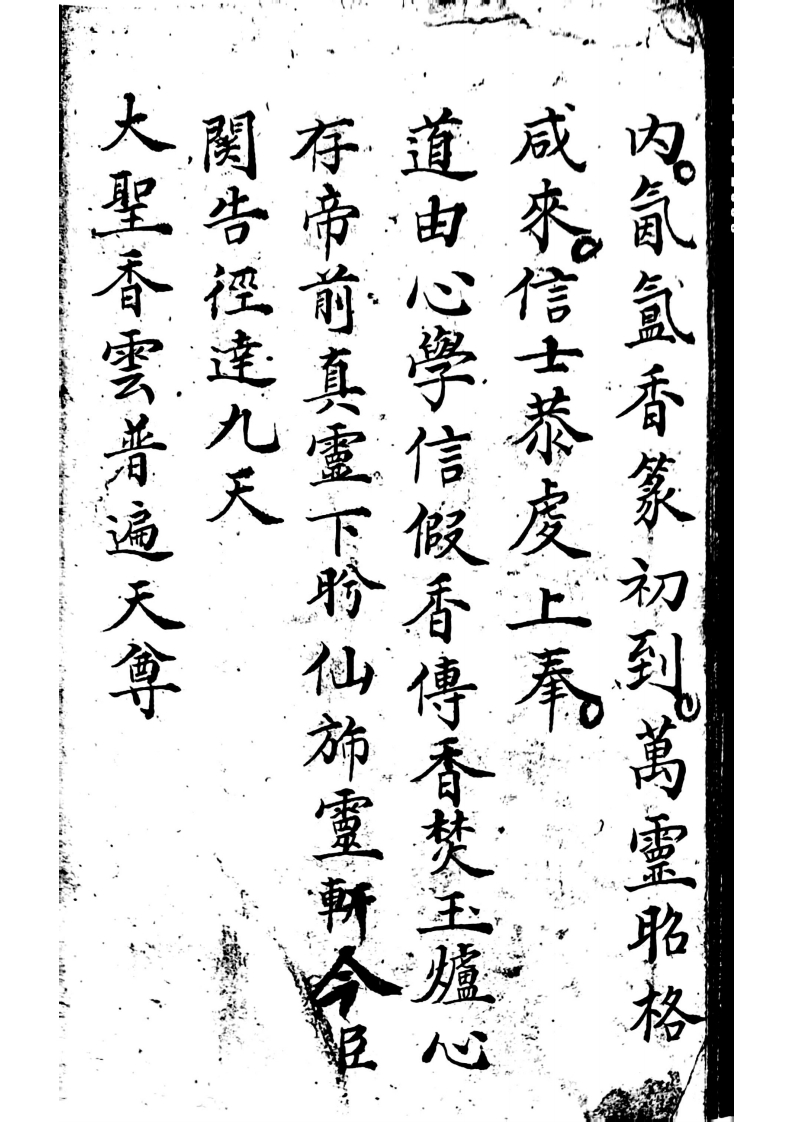 内。氤氲香篆初到。萬靈昭格
咸來。信士恭虔上奉。
道由心學信假香傳香焚玉爐心
存帝前真靈下盻仙斾靈軒今臣
関告徑達九天
大聖香雲普遍天尊